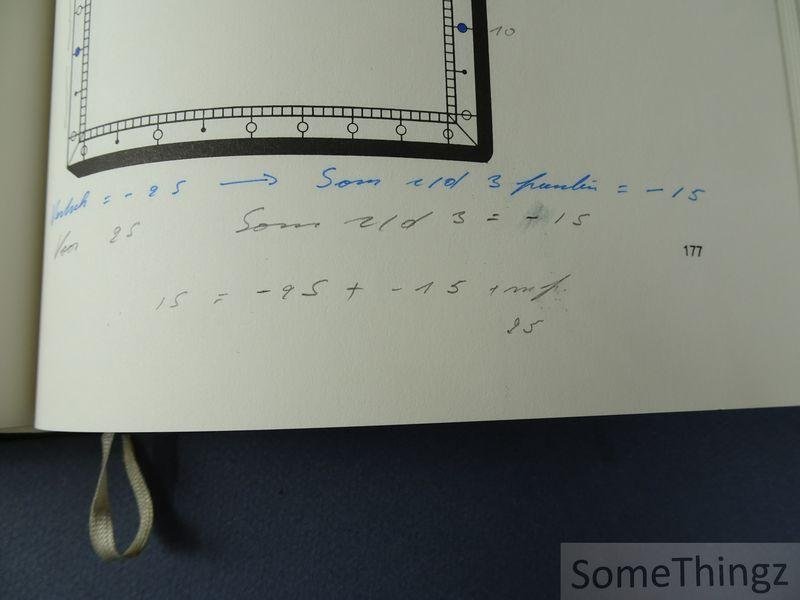 10
= - 25 → Som v/d 3 punten = - 15
25 Som v/d 3 = - 15
177
15 = - 25 + - 15 +
25
SomeThingz